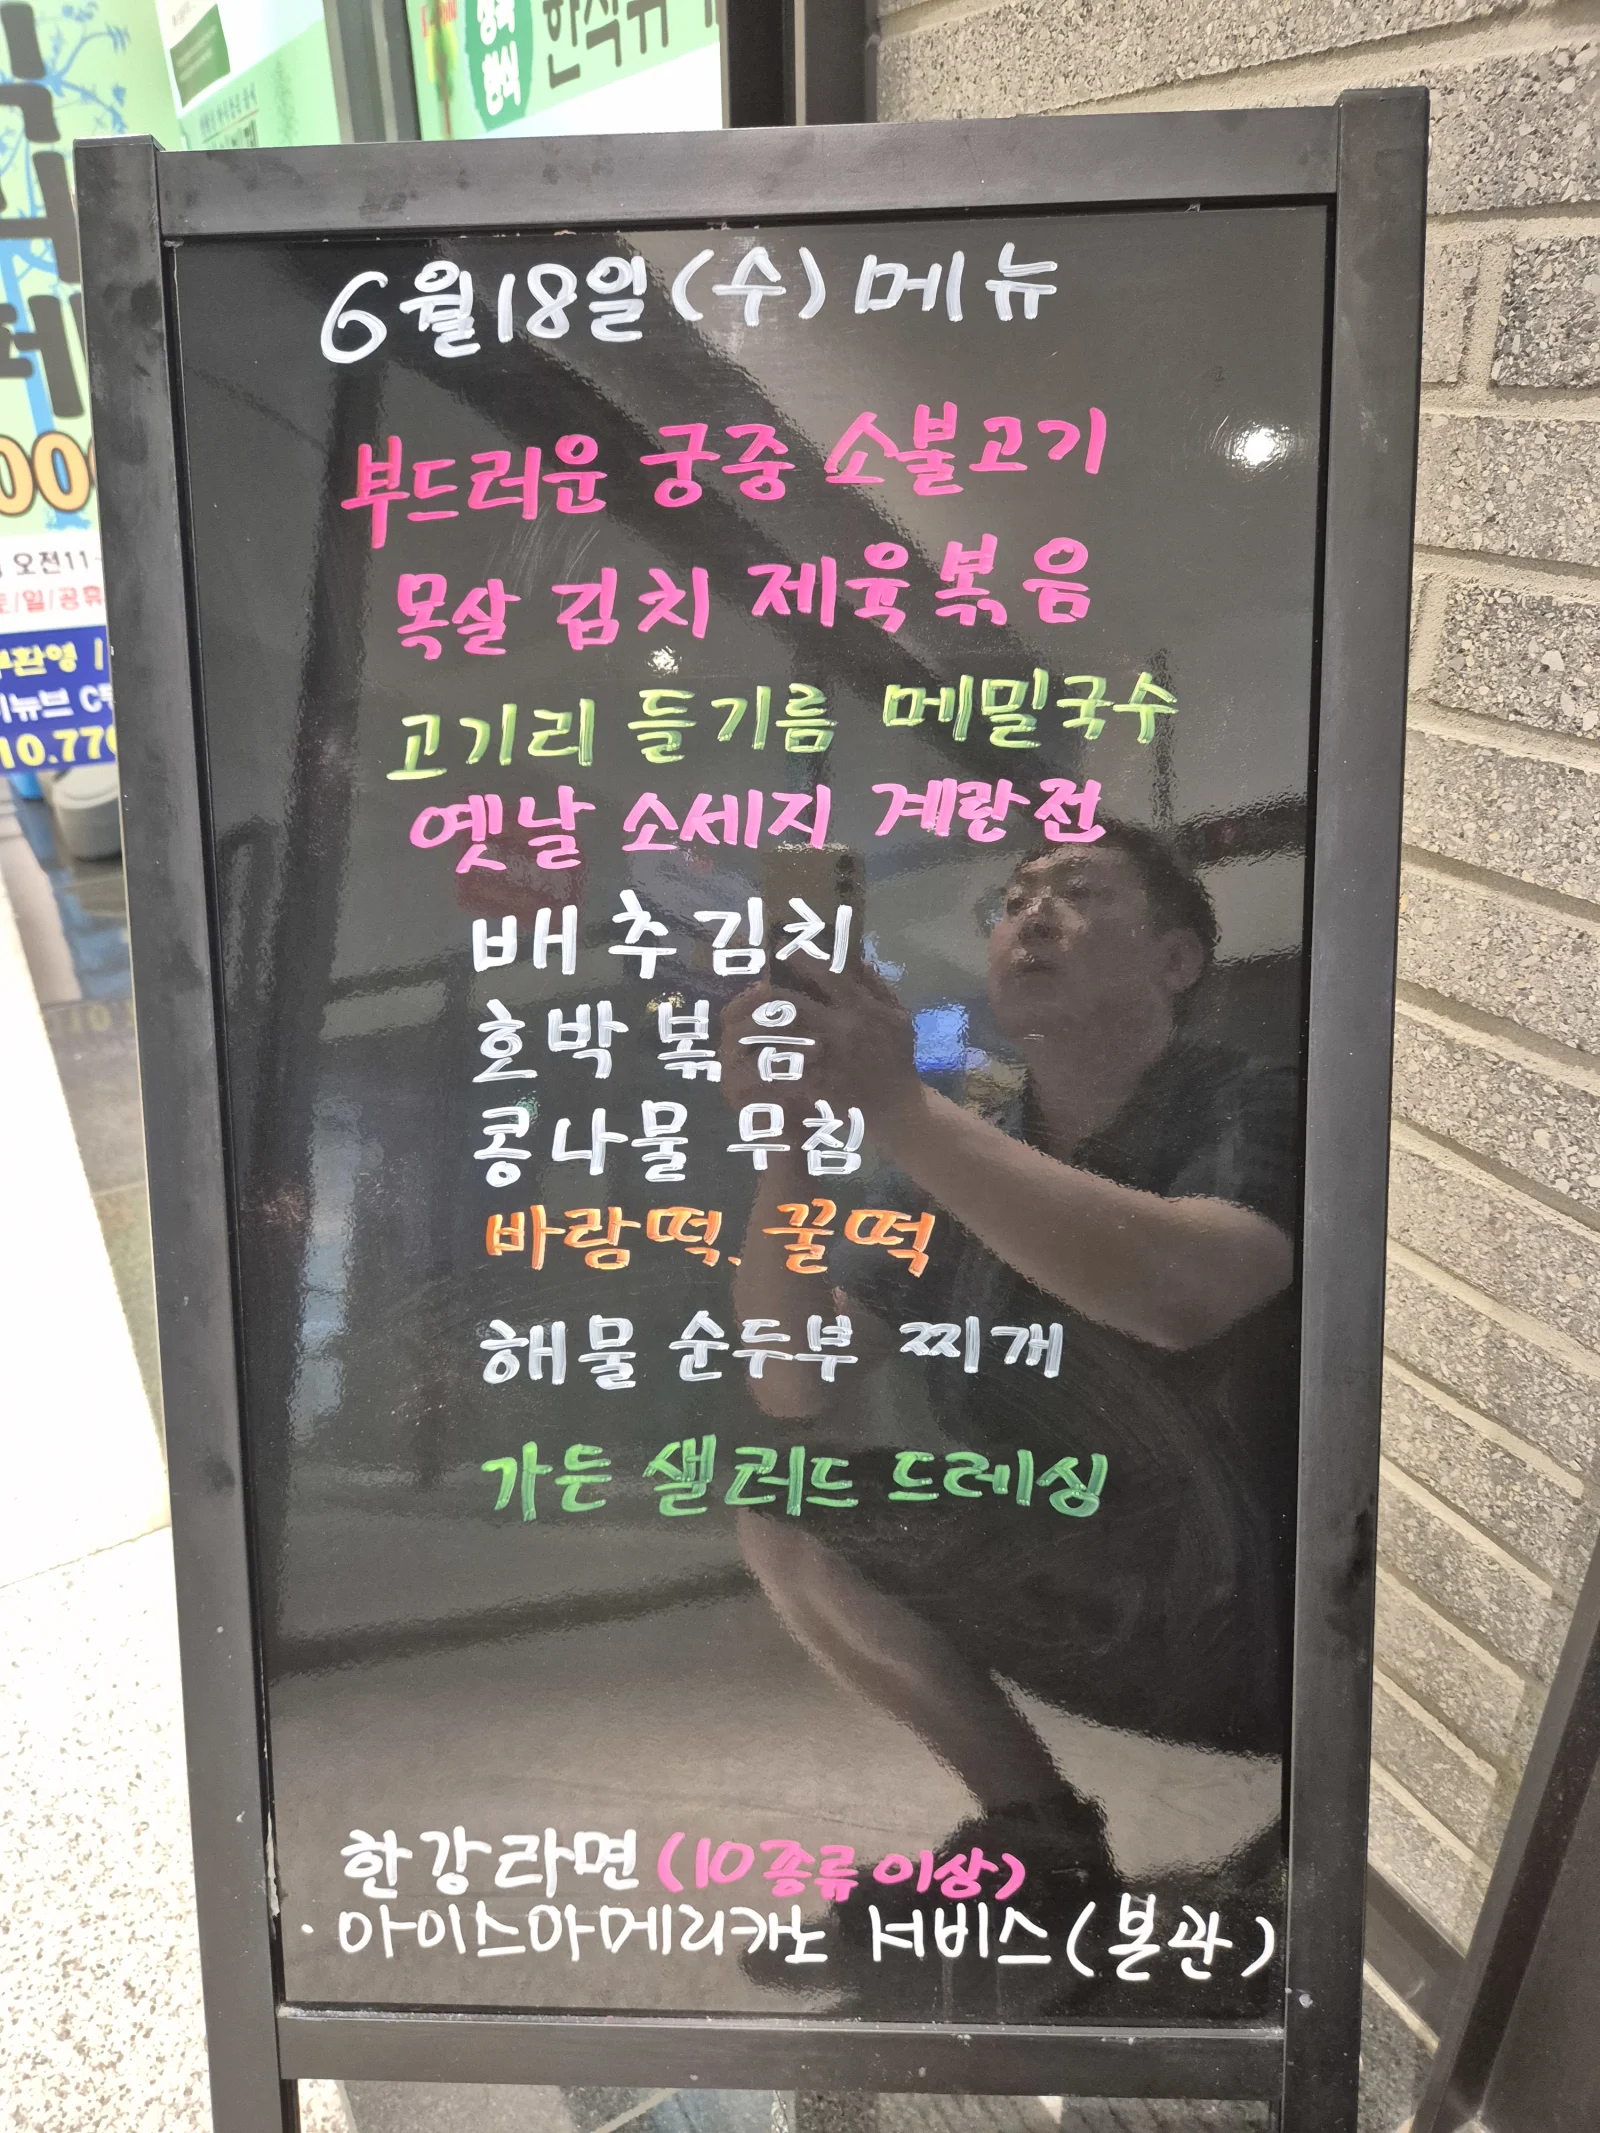 한식뷔
한식
오전11-
토/일/공휴
6월18일(수) 메뉴
부드러운 궁중 소불고기
목살 김치 제육볶음
고기리 들기름 메밀국수
옛날 소세지 계란전
배추김치
호박볶음
콩나물 무침
바람떡. 꿀떡
해물 순두부 찌개
가든 샐러드 드레싱
한강라면 (10종류 이상)
· 아이스아메리카노 서비스(본관)